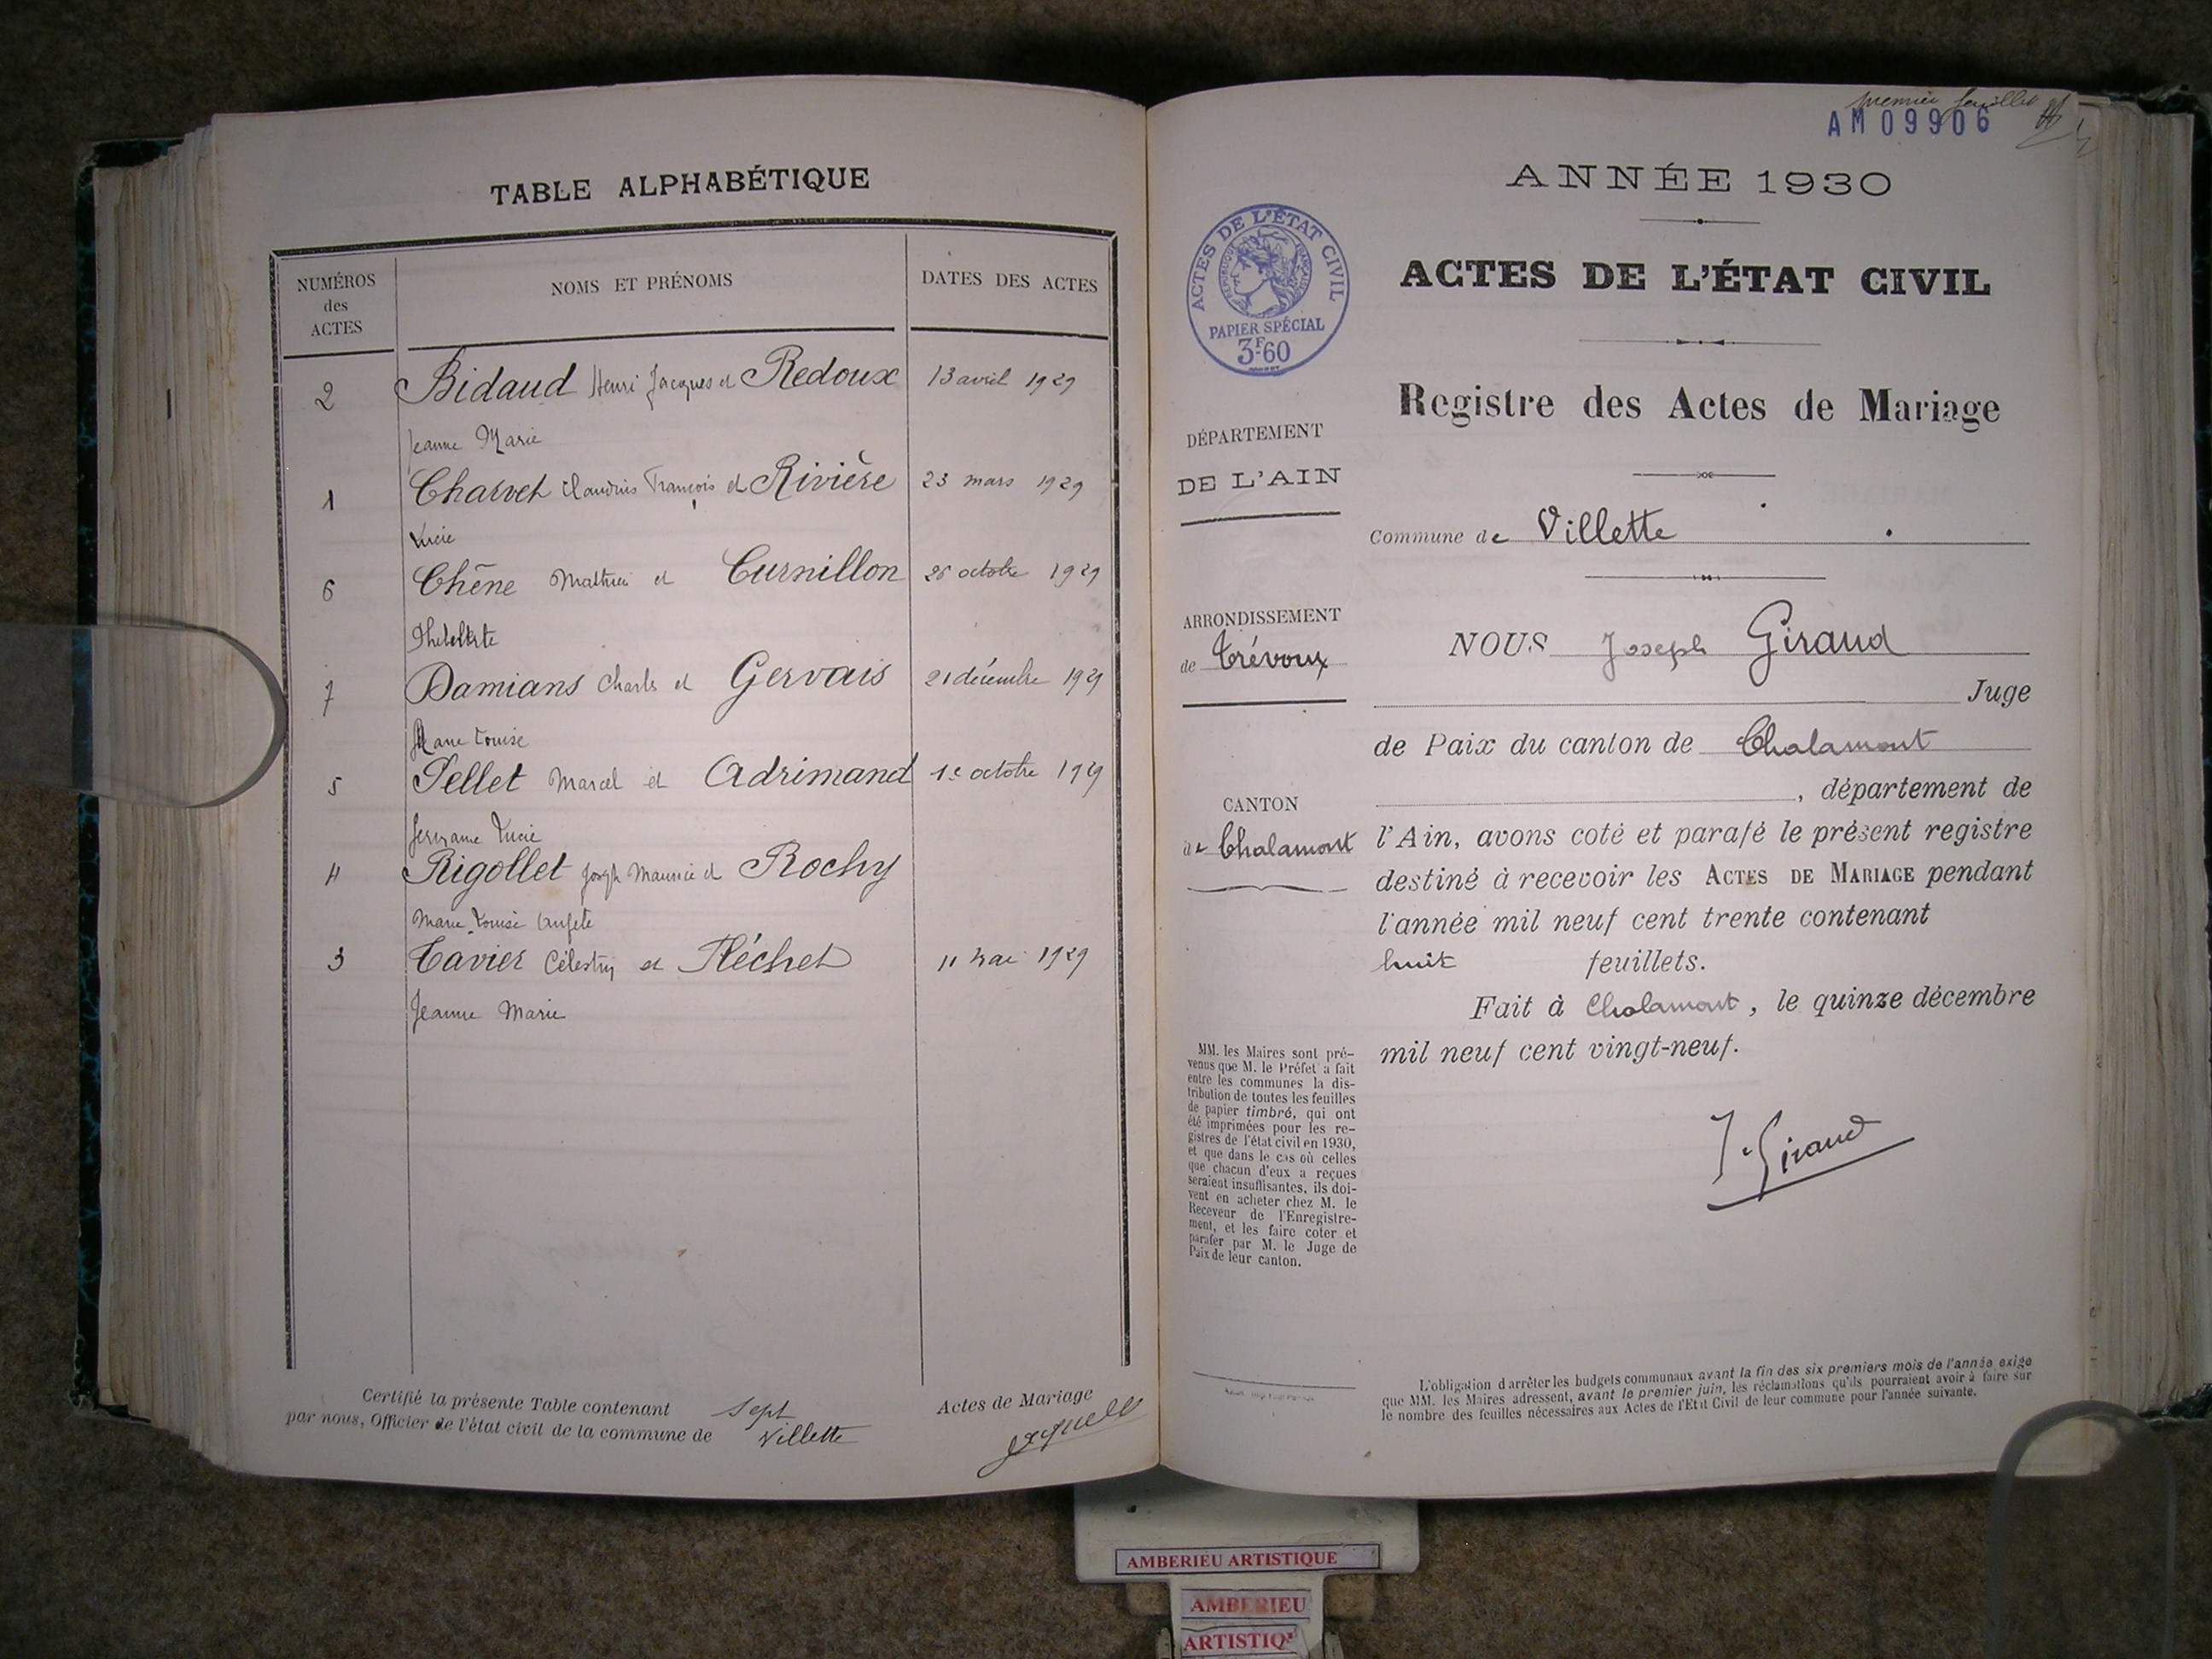 TABLE ALPHABÉTIQUE
NUMÉROS
des
ACTES
NOMS ET PRÉNOMS
DATES DES ACTES
2 Bidaud Henri Jacques et Redoux 13 avril 1929
Jeanne Marie
1 Charvet Claudius François et Rivière 23 mars 1929
Lucie
6 Chêne Mathieu et Curnillon 26 octobre 1929
7 Damians Charles et Gervais 21 décembre 1929
Louise
5 Pellet Marcel et Adrimand 1e octobre 1929
Germaine Lucie
4 Rigollet Joseph Maurice et Rochy
Marie Louise
3 Tavier et Fléchet 11 mai 1929
Jeanne Marie
Certifié la présente Table contenant sept Actes de Mariage
par nous, Officier de l'état civil de la commune de Villette
premier feuillet
AM 09906
ANNÉE 1930
ACTES DE L'ÉTAT CIVIL
RÉPUBLIQUE FRANÇAISE
PAPIER SPÉCIAL
3F60
ACTES DE L'ÉTAT CIVIL
Registre des Actes de Mariage
DÉPARTEMENT
DE L'AIN
Commune de Villette
ARRONDISSEMENT
de Trévoux
NOUS Joseph Giraud
Juge
de Paix du canton de Chalamont
, département de
CANTON
de Chalamont
l'Ain, avons coté et parafé le présent registre
destiné à recevoir les ACTES DE MARIAGE pendant
l'année mil neuf cent trente contenant
huit feuillets.
Fait à Chalamont, le quinze décembre
mil neuf cent vingt-neuf.
J. Giraud
MM. les Maires sont pré-
venus que M. le Préfet a fait
entre les communes la dis-
tribution de toutes les feuilles
de papier timbré, qui ont
été imprimées pour les re-
gistres de l'état civil en 1930,
et que dans le cas où celles
que chacun d'eux a reçues
seraient insuffisantes, ils doi-
vent en acheter chez M. le
Receveur de l'Enregistre-
ment, et les faire coter et
parafer par M. le Juge de
Paix de leur canton.
L'obligation d'arrêter les budgets communaux avant la fin des six premiers mois de l'année exige
que MM. les Maires adressent, avant le premier juin, les réclamations qu'ils pourraient avoir à faire sur
le nombre des feuilles nécessaires aux Actes de l'Etat Civil de leur commune pour l'année suivante.
AMBERIEU ARTISTIQUE
AMBERIEU
ARTISTIQ